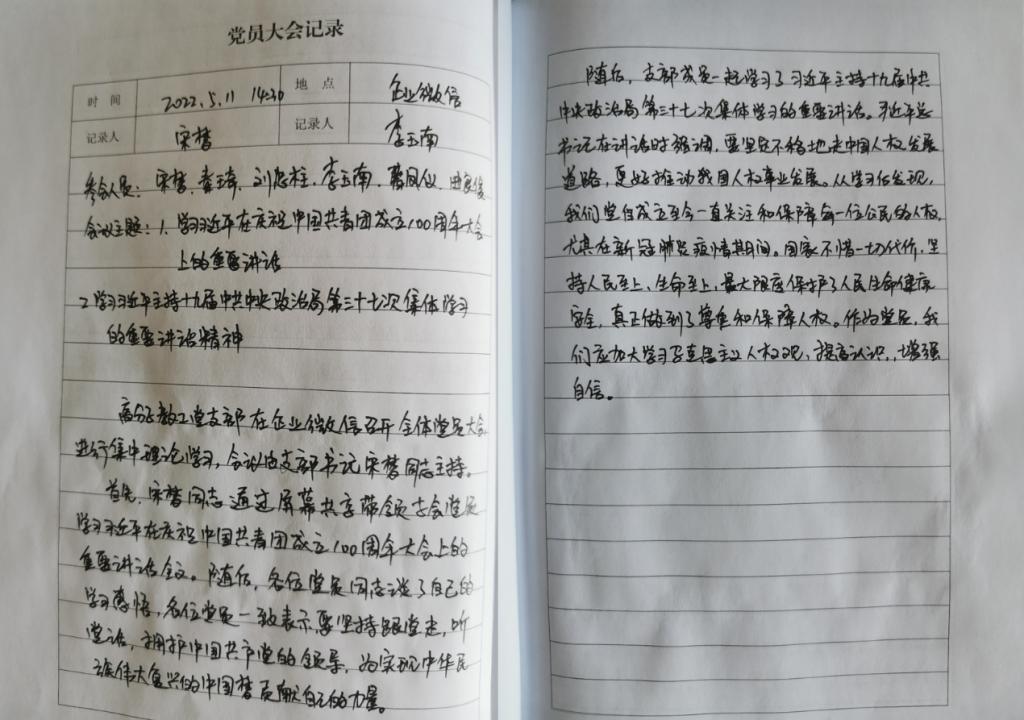 党员大会记录
时 间 2022.5.11 14:30 地 点 企业微信
记录人 宋梦 记录人 李玉南
参会人员：宋梦、李玉南
会议主题：1. 学习习近平在庆祝中国共青团成立100周年大会
上的重要讲话
2. 学习习近平主持十九届中共中央政治局第三十七次集体学习
的重要讲话精神
高分子教工党支部在企业微信召开全体党员大会
进行集中理论学习，会议由支部书记宋梦同志主持。
首先，宋梦同志通过屏幕共享带领与会党员
学习习近平在庆祝中国共青团成立100周年大会上的
重要讲话全文。随后，各位党员同志谈了自己的
学习感悟，各位党员一致表示要坚持跟党走，听
党话，拥护中国共产党的领导，为实现中华民
族伟大复兴的中国梦贡献自己的力量。
随后，支部成员一起学习了习近平主持十九届中共
中央政治局第三十七次集体学习的重要讲话。习近平总
书记在讲话时强调，要坚定不移地走中国人权发展
道路，更好推动我国人权事业发展。从学习后发现，
我们党自成立至今一直关注和保障每一位公民的人权，
尤其在新冠肺炎疫情期间。国家不惜一切代价，坚
持人民至上、生命至上，最大限度保护了人民生命健康
安全，真正做到了尊重和保障人权。作为党员，我
们应加大学习马克思主义人权观，提高认识，增强
自信。